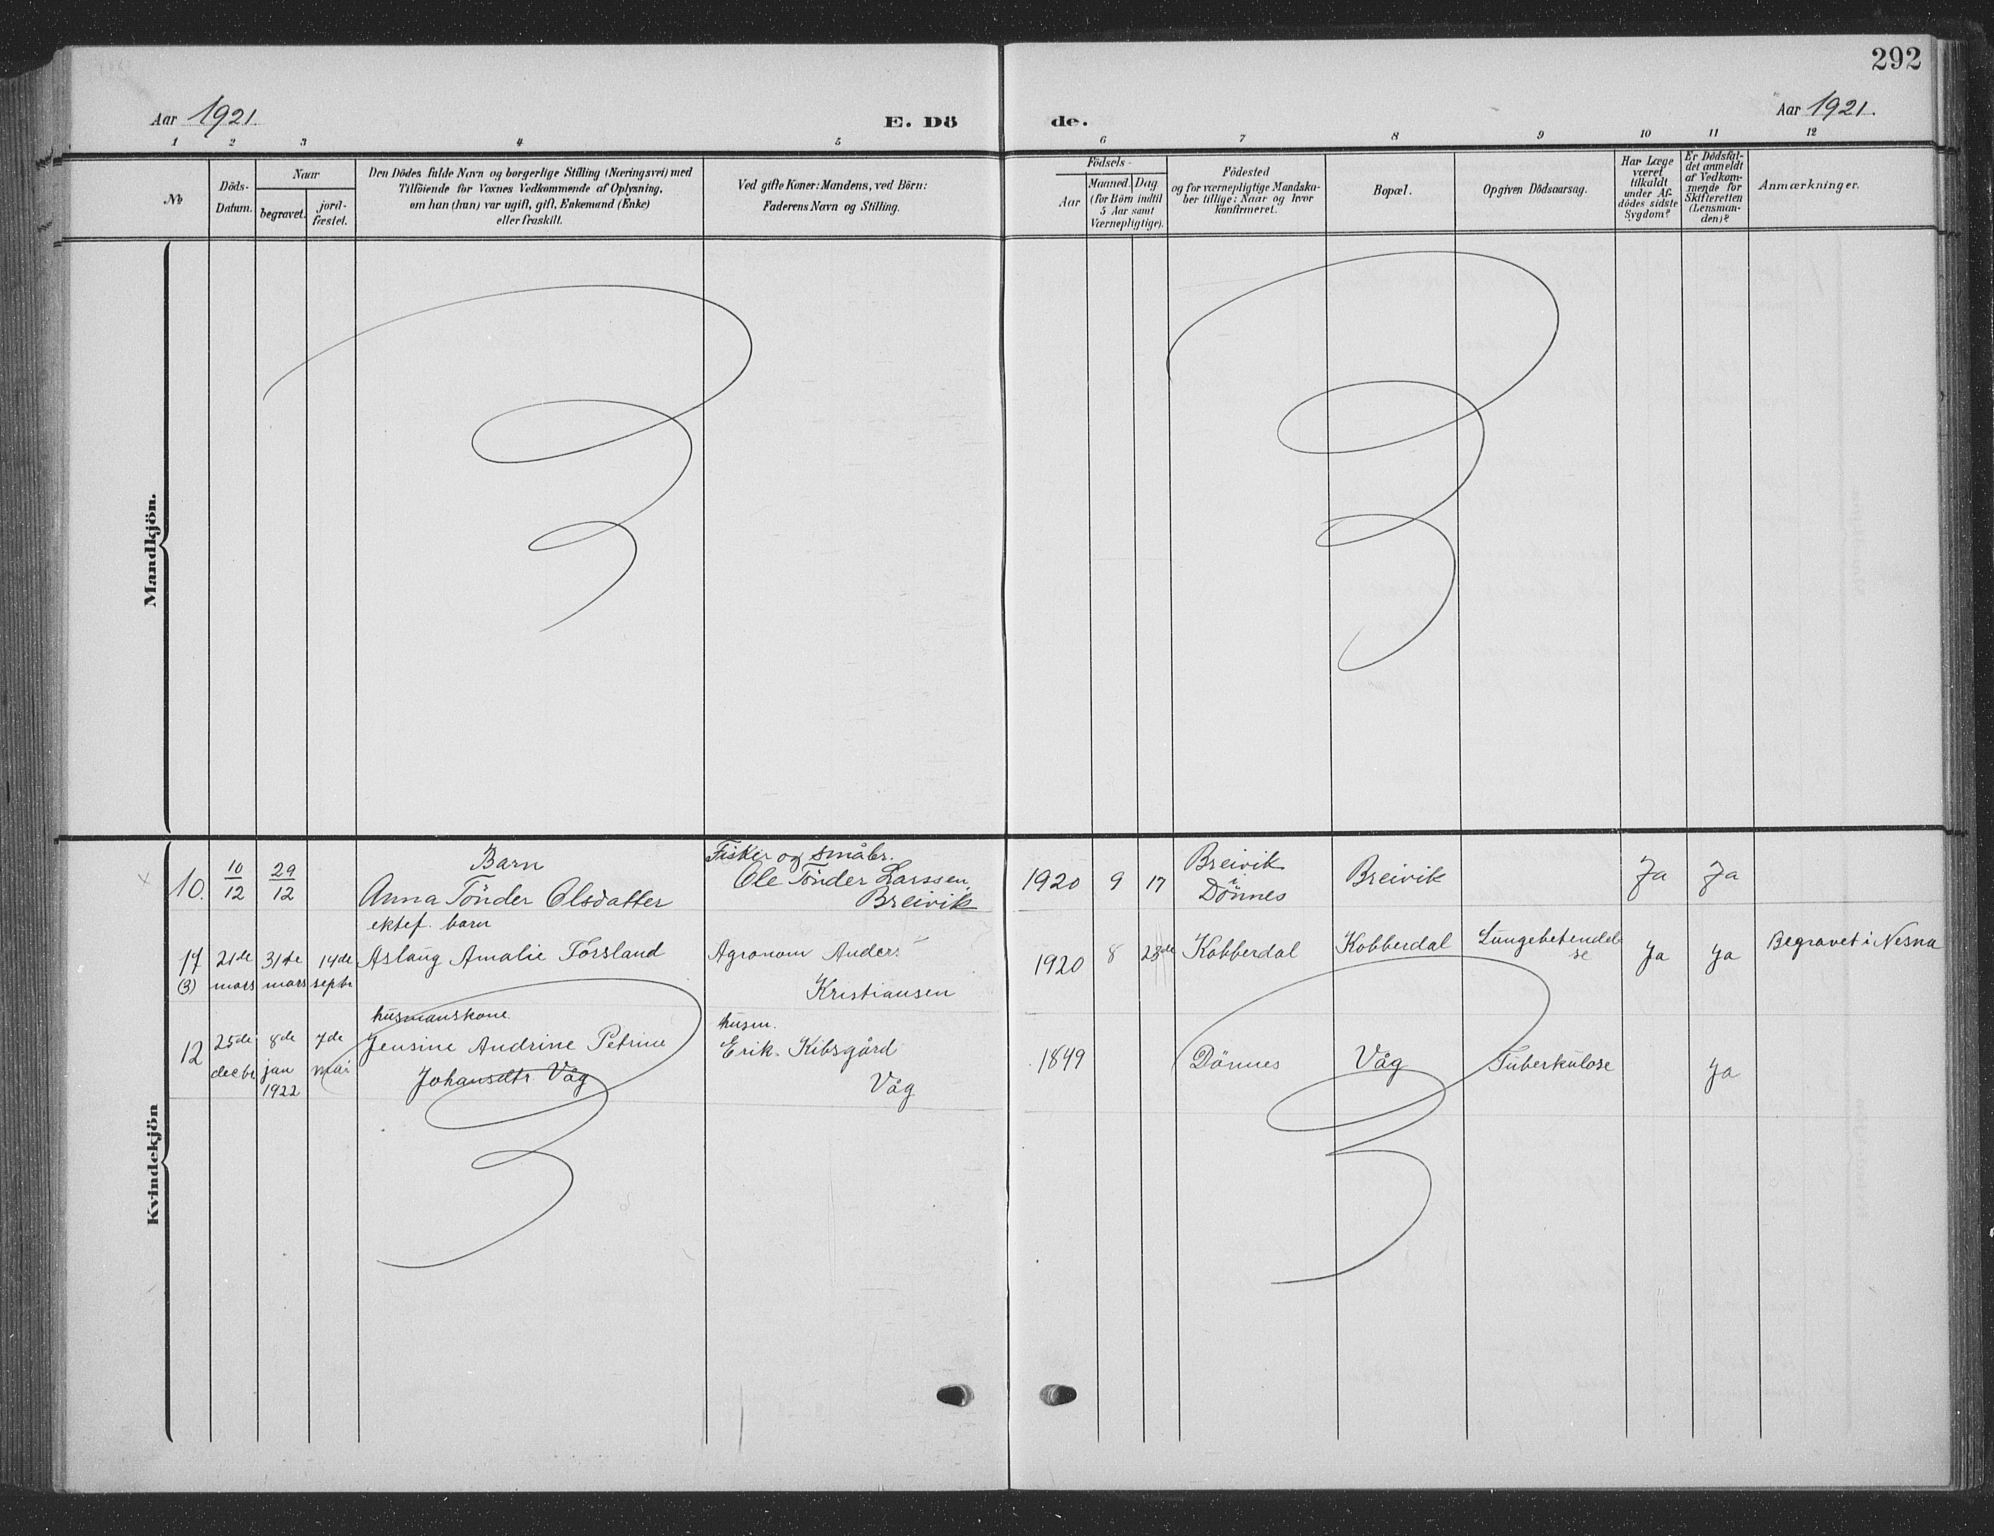 292
Aar 1921.
E. Dö
de.
Aar 1921.
1 2 3 4 5 6 7 8 9 10 11 12
No
Döds-
Datum.
Naar
begravet.
jord-
fæstet.
Den Dödes fulde Navn og borgerlige Stilling (Næringsvei) med
Tilföiende for Voxnes Vedkommende af Oplysning,
om han (hun) var ugift, gift, Enkemand (Enke)
eller fraskilt.
Ved gifte Koner: Mandens, ved Börn:
Faderens Navn og Stilling.
Födsels-
Aar
Maaned. Dag.
(for Börn indtil
5 Aar samt
Værnepligtige).
Födested
og for værnepligtige Mandska-
ber tillige: Naar og hvor
konfirmeret.
Bopæl.
Opgiven Dödsaarsag.
Har Læge
været
tilkaldt
under Af-
dödes sidste
Sygdom?
Er Dödsfal-
det anmeldt
af Vedkom-
mende for
Skifteretten
(Lensman-
den)?
Anmærkninger.
Mandkjön.
Kvindekjön
10.
10
12
29
12
Barn
Anna Tönder Olsdatter
Fisker og småbr.
Ole Tönder Larssen,
Breivik
1920 9 17
Breivik
i
Dönnes
Breivik
Ja
Ja
(3)
21de
mars
31te
mars
14de
septr
ektef. barn
Aslaug Amalie Forsland
Agronom Anders
Kristiansen
1920 8 23de
Kobberdal
Kobberdal
Lungebetendel-
se
Ja
Ja
Begravet i Nesna
12
25de
decbr
8de
jan
1922
7de
mai
husmanskone
Jensine Andrine Petrine
Johansdtr. Våg
husm.
Erik Kibsgård
Våg
1849
Dönnes
Våg
Tuberkulose
Ja